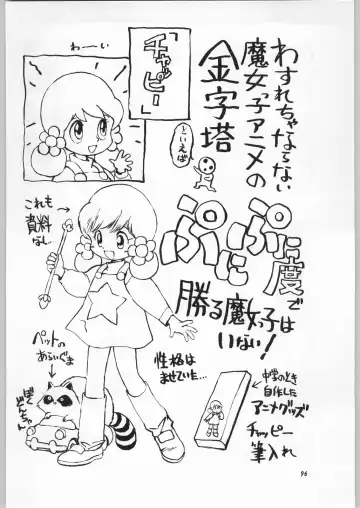 わすれちゃならない
魔女っ子アニメの
金字塔
「チャッピー」
といえば
わーい
ぷにぷに度で
勝る魔女っ子は
いない!
これも
資料
なし…
ペットの
あらいぐま
ぼく
どんちゃん
性格は
ませていた…
中学のとき
自作した
アニメグッズ
チャッピー
筆入れ
96